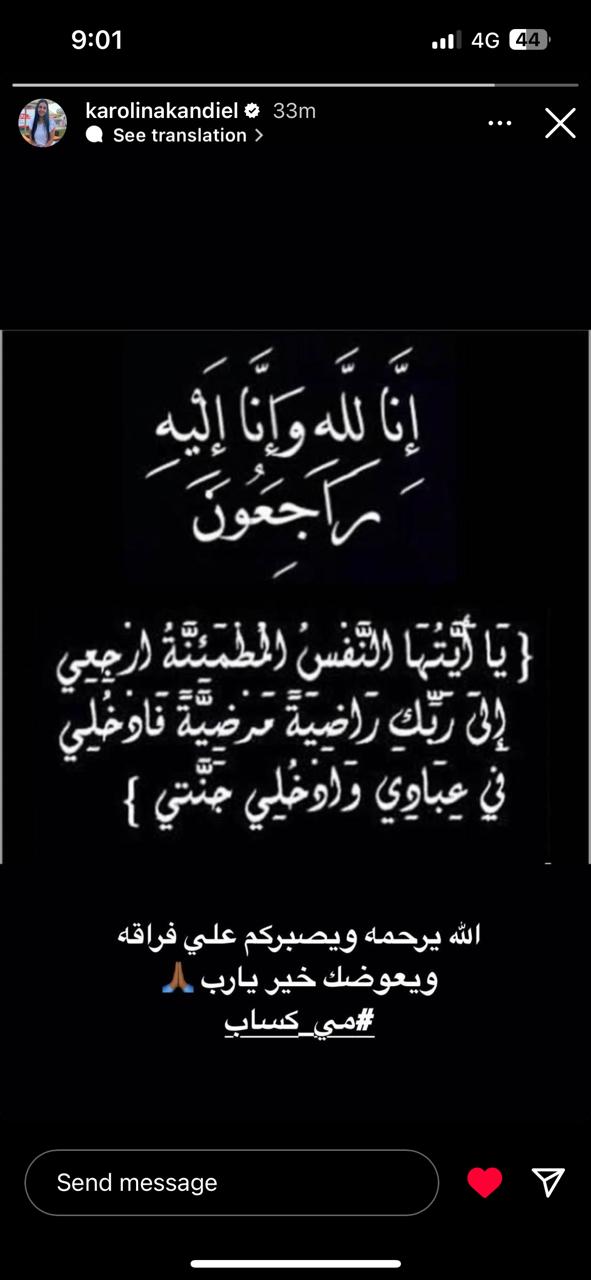 9:01 4G 44
karolinakandiel 33m
See translation >
إِنَّا لِلَّهِ وَإِنَّا إِلَيْهِ
رَاجِعُونَ
{ يَا أَيَّتُهَا النَّفْسُ الْمُطْمَئِنَّةُ ارْجِعِي
إِلَى رَبِّكِ رَاضِيَةً مَرْضِيَّةً فَادْخُلِي
فِي عِبَادِي وَادْخُلِي جَنَّتِي }
الله يرحمه ويصبركم علي فراقه
ويعوضك خير يارب 🙏🏾
#مي_كساب
Send message